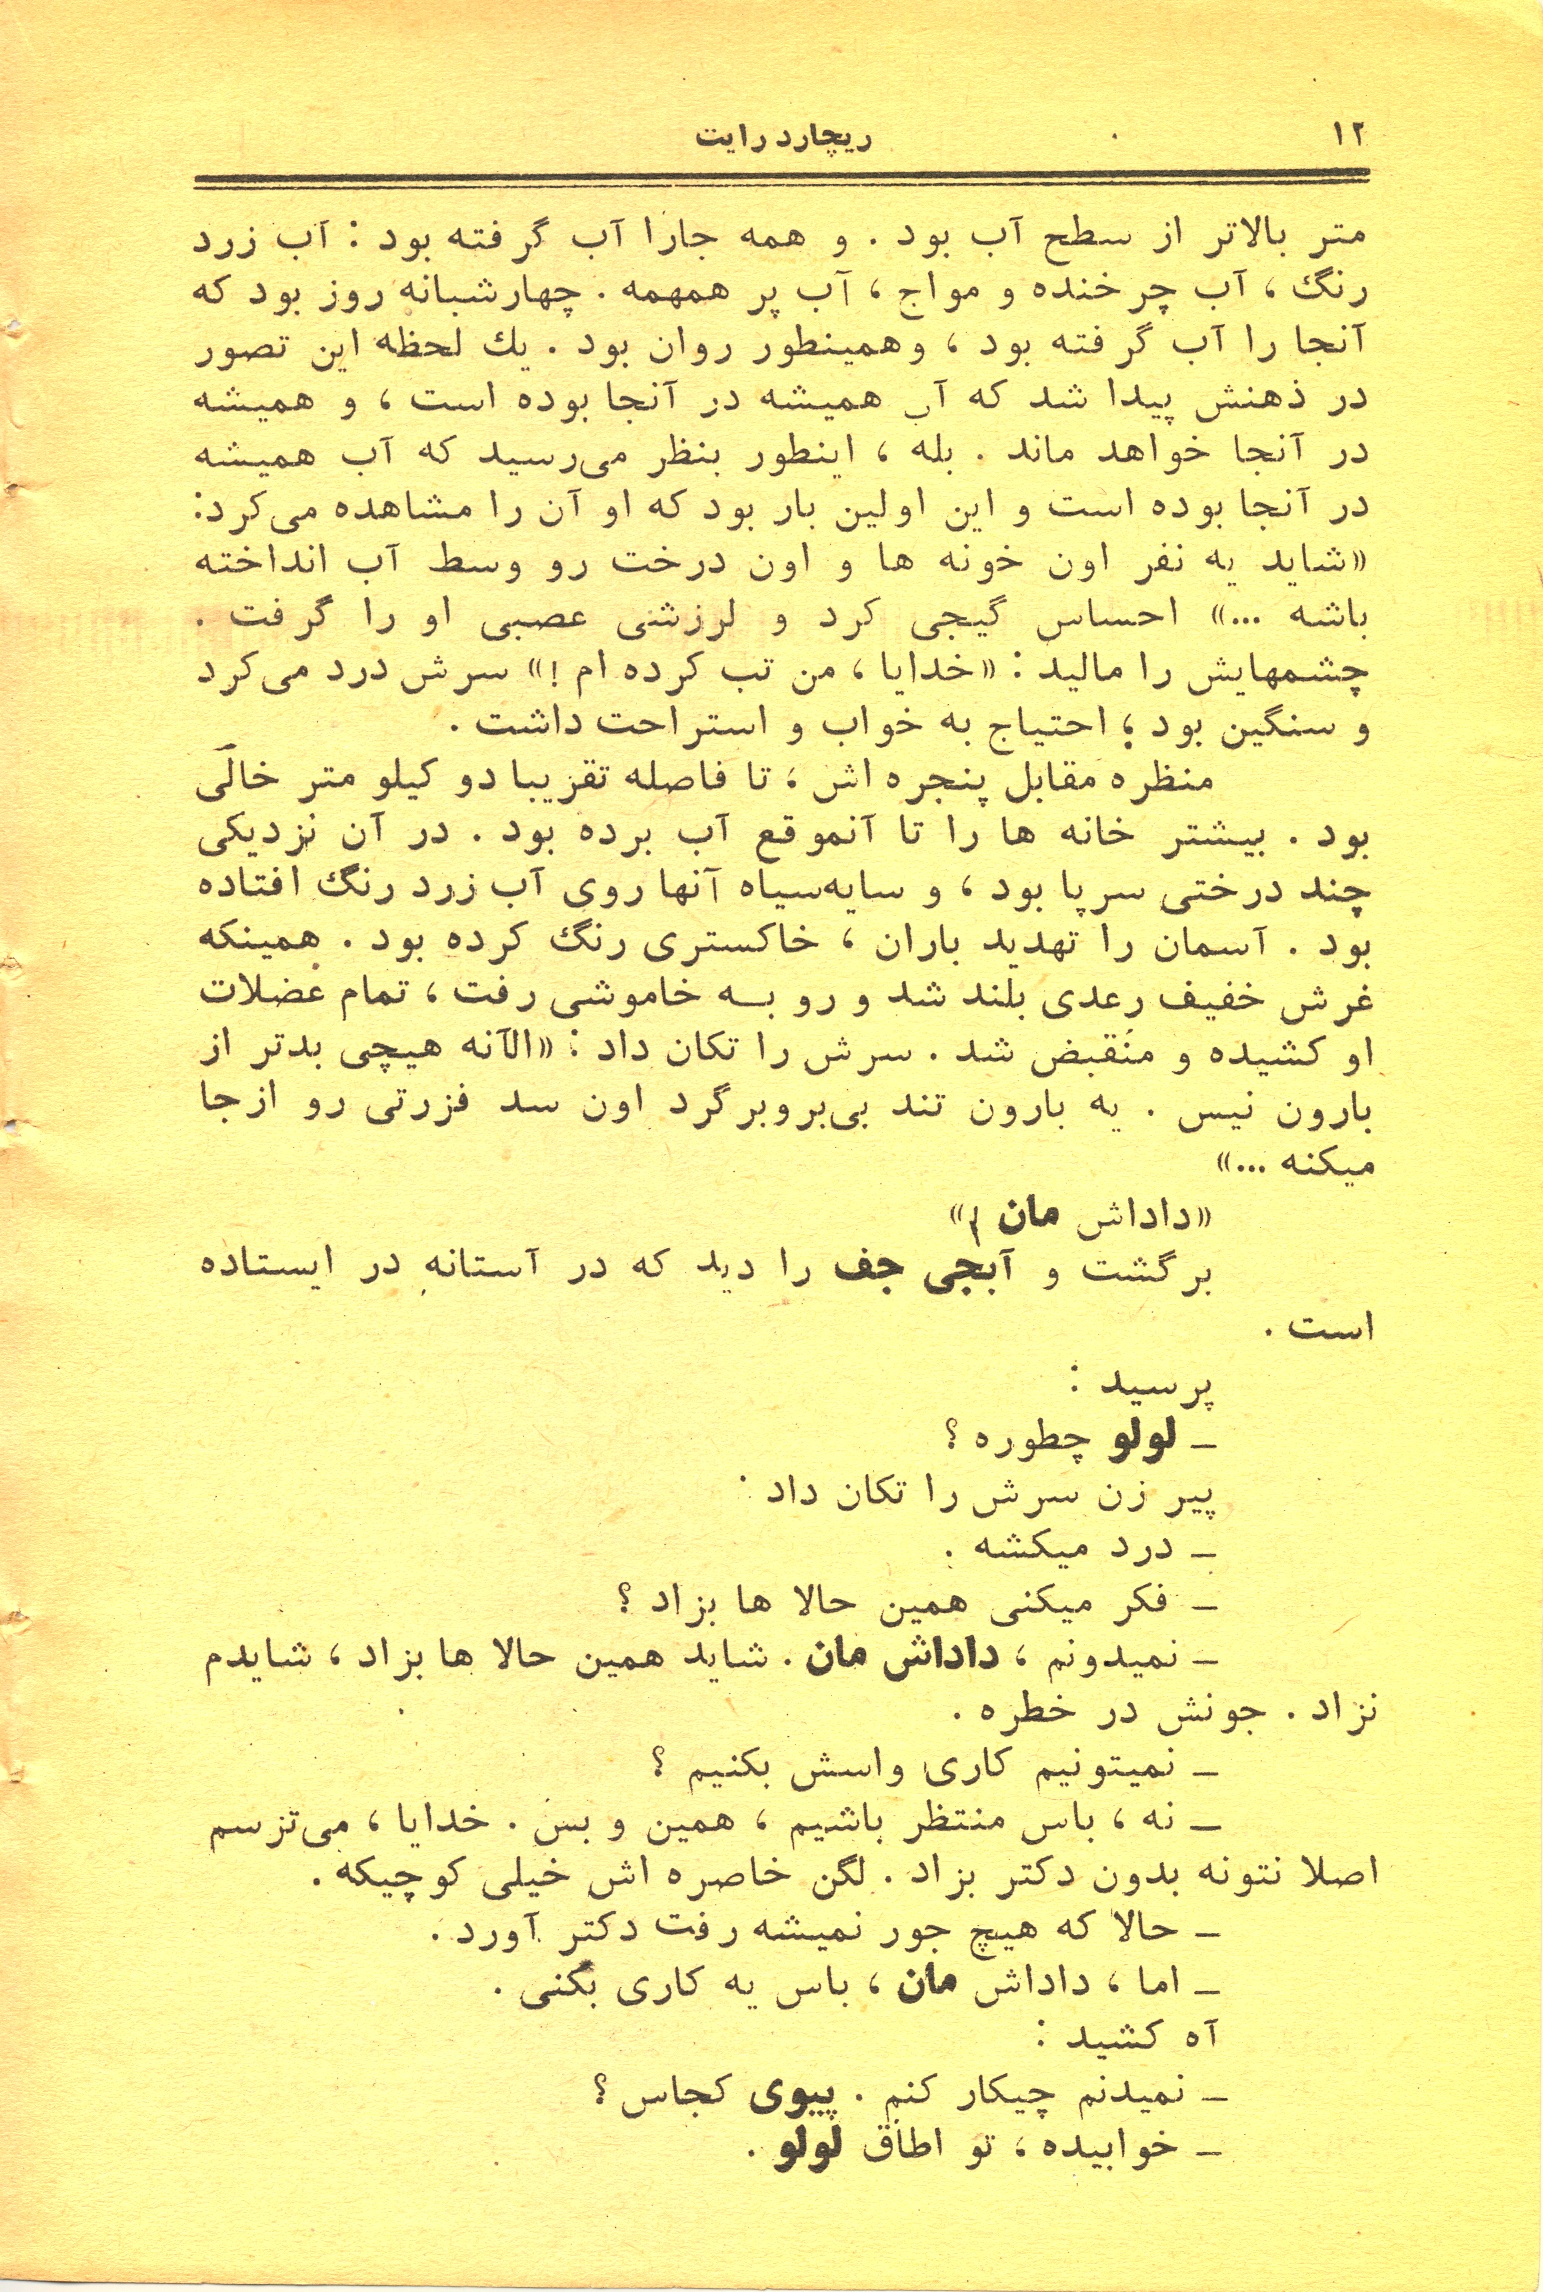 ۱۲
ریچارد رایت
متر بالاتر از سطح آب بود . و همه جارا آب گرفته بود : آب زرد
رنگ ، آب چرخنده و مواج ، آب پر همهمه . چهارشبانه روز بود که
آنجا را آب گرفته بود ، وهمینطور روان بود . یك لحظه این تصور
در ذهنش پیدا شد که آب همیشه در آنجا بوده است ، و همیشه
در آنجا خواهد ماند . بله ، اینطور بنظر می‌رسید که آب همیشه
در آنجا بوده است و این اولین بار بود که او آن را مشاهده می‌کرد:
«شاید یه نفر اون خونه ها و اون درخت رو وسط آب انداخته
باشه ...» احساس گیجی کرد و لرزشی عصبی او را گرفت .
چشمهایش را مالید : «خدایا ، من تب کرده ام !» سرش درد می‌کرد
و سنگین بود ؛ احتیاج به خواب و استراحت داشت .
منظره مقابل پنجره اش ، تا فاصله تقریبا دو کیلو متر خالی
بود . بیشتر خانه ها را تا آنموقع آب برده بود . در آن نزدیکی
چند درختی سرپا بود ، و سایه‌سیاه آنها روی آب زرد رنگ افتاده
بود . آسمان را تهدید باران ، خاکستری رنگ کرده بود . همینکه
غرش خفیف رعدی بلند شد و رو به خاموشی رفت ، تمام عضلات
او کشیده و منقبض شد . سرش را تکان داد : «الآنه هیچی بدتر از
بارون نیس . یه بارون تند بی‌بروبرگرد اون سد فزرتی رو ازجا
میکنه ...»
«داداش مان !»
برگشت و آبجی جف را دید که در آستانه در ایستاده
است .
پرسید :
ـ لولو چطوره ؟
پیر زن سرش را تکان داد :
ـ درد میکشه .
ـ فکر میکنی همین حالا ها بزاد ؟
ـ نمیدونم ، داداش مان . شاید همین حالا ها بزاد ، شایدم
نزاد . جونش در خطره .
ـ نمیتونیم کاری واسش بکنیم ؟
ـ نه ، باس منتظر باشیم ، همین و بس . خدایا ، می‌ترسم
اصلا نتونه بدون دکتر بزاد . لگن خاصره اش خیلی کوچیکه .
ـ حالا که هیچ جور نمیشه رفت دکتر آورد .
ـ اما ، داداش مان ، باس یه کاری بکنی .
آه کشید :
ـ نمیدنم چیکار کنم . پیوی کجاس ؟
ـ خوابیده ، تو اطاق لولو .